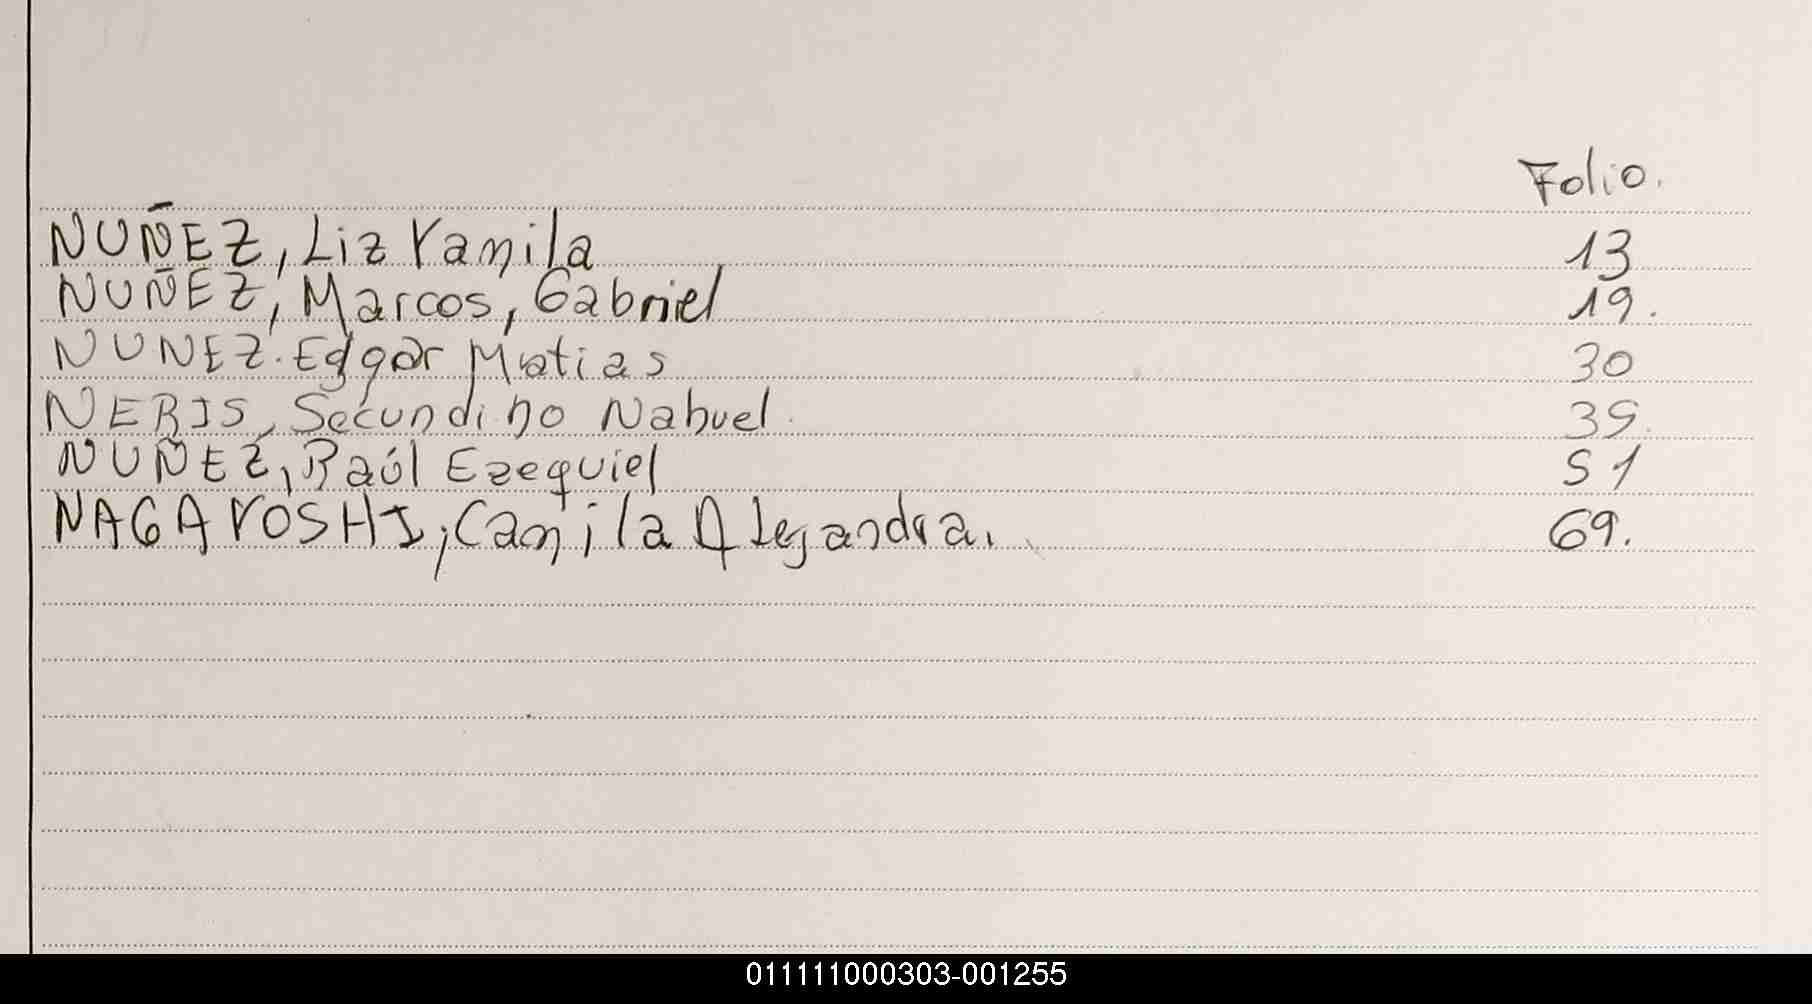 Folio.
NUÑEZ, Liz Yamila 13
NUÑEZ, Marcos, Gabriel 19.
NUNEZ. Edgar Matias 30
NERIS, Secundino Nahuel. 39.
NUÑEZ, Raúl Ezequiel 51
NAGAYOSHI, Camila Alejandra. 69.
011111000303-001255